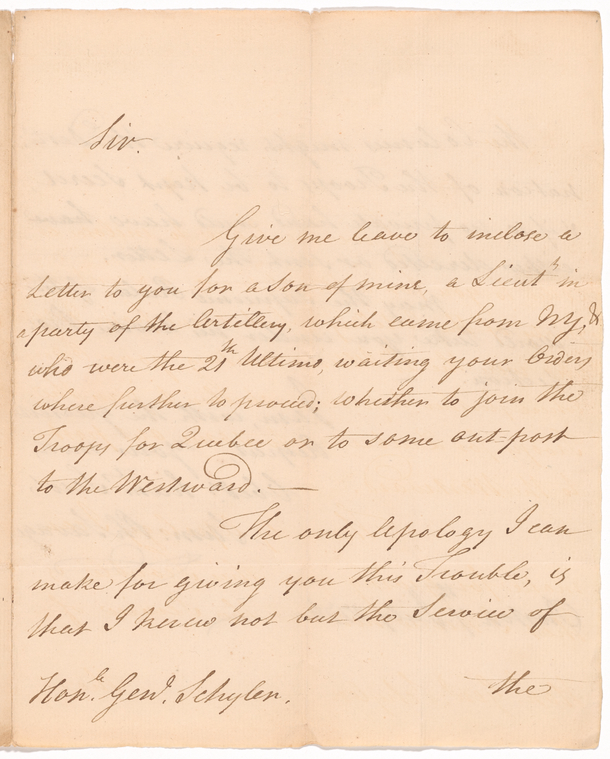 Sir.
Give me leave to inclose a
Letter to you for a son of mine, a Lieut.t in
a party of the Artillery, which came from NY, &
who were the 21th Ultimo, waiting your Orders
where further to proceed; whether to join the
Troops for Quebec or to some out-post
to the Westward. —
The only Apology I can
make for giving you this Trouble, is
that I knew not but the Service of
Honble. Genl. Schyler.
the